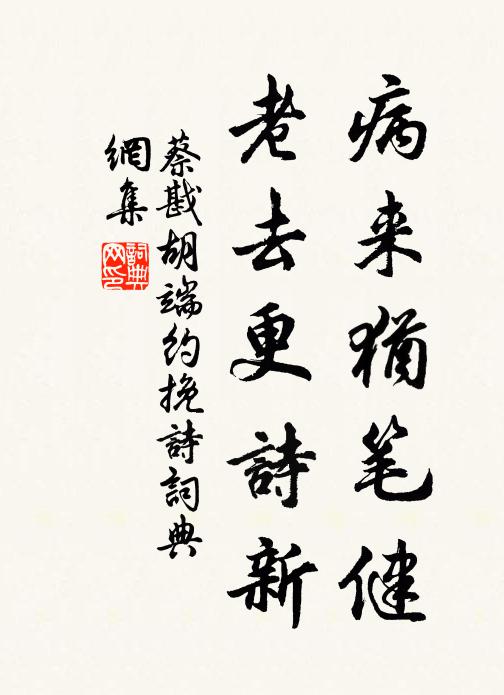 病来猶笔健
老去更詩新
蔡戡胡端约挽詩詞典
網集
詞典
网印